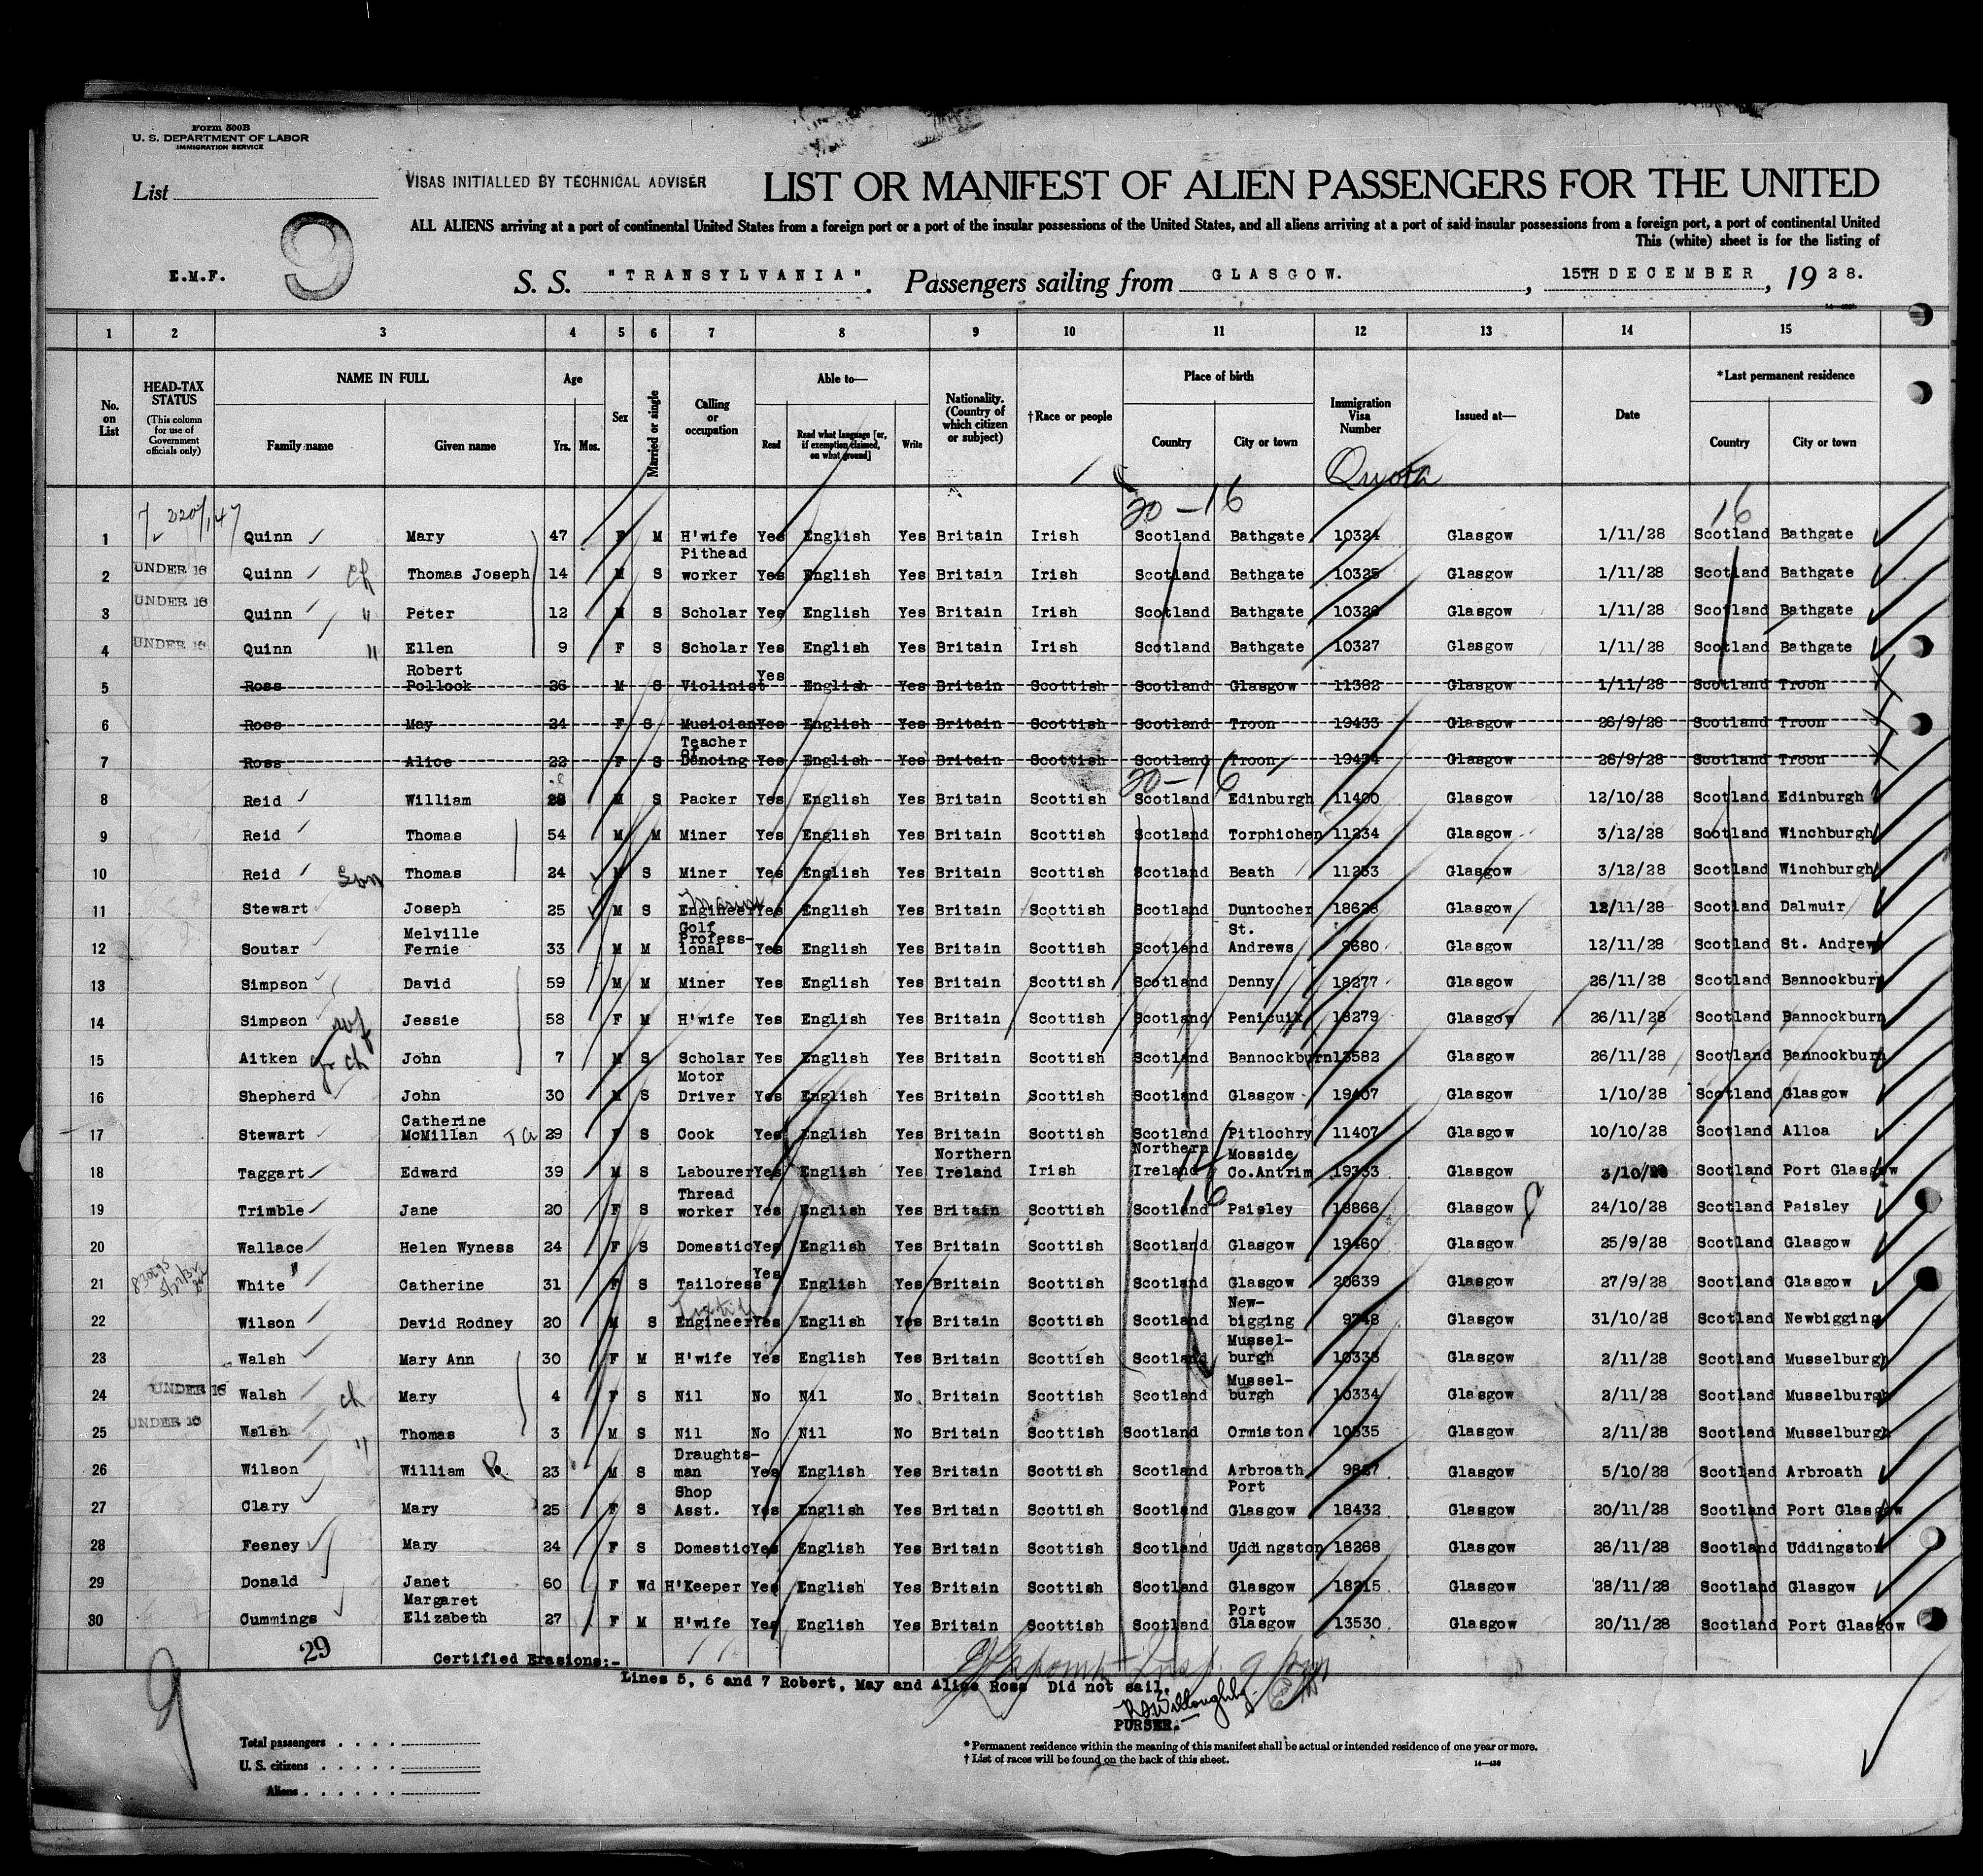 Form 500B
U. S. DEPARTMENT OF LABOR
IMMIGRATION SERVICE
List
VISAS INITIALLED BY TECHNICAL ADVISER
LIST OR MANIFEST OF ALIEN PASSENGERS FOR THE UNITED
9
ALL ALIENS arriving at a port of continental United States from a foreign port or a port of the insular possessions of the United States, and all aliens arriving at a port of said insular possessions from a foreign port, a port of continental United
This (white) sheet is for the listing of
E.M.F.
S. S. "TRANSYLVANIA". Passengers sailing from GLASGOW. , 15TH DECEMBER , 19 28.
1 2 3 4 5 6 7 8 9 10 11 12 13 14 15
No. on List
HEAD-TAX STATUS (This column for use of Government officials only)
NAME IN FULL Family name Given name
Age Yrs. Mos.
Sex
Married or single
Calling or occupation
Able to— Read Read what language [or, if exemption claimed, on what ground] Write
Nationality. (Country of which citizen or subject)
†Race or people
Place of birth Country City or town
Immigration Visa Number
Quota
Issued at—
Date
*Last permanent residence Country City or town
20-16 16
1 Quinn Mary 47 F M H'wife Yes English Yes Britain Irish Scotland Bathgate 10324 Glasgow 1/11/28 Scotland Bathgate
2 UNDER 16 Quinn ch Thomas Joseph 14 M S Pithead worker Yes English Yes Britain Irish Scotland Bathgate 10325 Glasgow 1/11/28 Scotland Bathgate
3 UNDER 16 Quinn " Peter 12 M S Scholar Yes English Yes Britain Irish Scotland Bathgate 10326 Glasgow 1/11/28 Scotland Bathgate
4 UNDER 16 Quinn " Ellen 9 F S Scholar Yes English Yes Britain Irish Scotland Bathgate 10327 Glasgow 1/11/28 Scotland Bathgate
5 Ross Robert Pollock 26 M S Violinist Yes English Yes Britain Scottish Scotland Glasgow 11382 Glasgow 1/11/28 Scotland Troon
6 Ross May 24 F S Musician Yes English Yes Britain Scottish Scotland Troon 19433 Glasgow 26/9/28 Scotland Troon
7 Ross Alice 22 F S Teacher of Dancing Yes English Yes Britain Scottish Scotland Troon 19434 Glasgow 26/9/28 Scotland Troon
20-16
8 Reid William 28 M S Packer Yes English Yes Britain Scottish Scotland Edinburgh 11400 Glasgow 12/10/28 Scotland Edinburgh
9 Reid Thomas 54 M M Miner Yes English Yes Britain Scottish Scotland Torphichen 11234 Glasgow 3/12/28 Scotland Winchburgh
10 Reid Son Thomas 24 M S Miner Yes English Yes Britain Scottish Scotland Beath 11253 Glasgow 3/12/28 Scotland Winchburgh
11 Stewart Joseph 25 M S Engineer Yes English Yes Britain Scottish Scotland Duntocher 18628 Glasgow 12/11/28 Scotland Dalmuir
12 Soutar Melville Fernie 33 M M Golf Profess-ional Yes English Yes Britain Scottish Scotland St. Andrews 9680 Glasgow 12/11/28 Scotland St. Andrews
13 Simpson David 59 M M Miner Yes English Yes Britain Scottish Scotland Denny 18277 Glasgow 26/11/28 Scotland Bannockburn
14 Simpson wf Jessie 58 F M H'wife Yes English Yes Britain Scottish Scotland Penicuik 18279 Glasgow 26/11/28 Scotland Bannockburn
15 Aitken gr ch John 7 M S Scholar Yes English Yes Britain Scottish Scotland Bannockburn 13582 Glasgow 26/11/28 Scotland Bannockburn
16 Shepherd John 30 M S Motor Driver Yes English Yes Britain Scottish Scotland Glasgow 19407 Glasgow 1/10/28 Scotland Glasgow
17 Stewart Catherine McMillan 29 F S Cook Yes English Yes Britain Scottish Scotland Pitlochry 11407 Glasgow 10/10/28 Scotland Alloa
18 Taggart Edward 39 M S Labourer Yes English Yes Northern Ireland Irish Northern Ireland Mosside Co.Antrim 19333 Glasgow 3/10/28 Scotland Port Glasgow
19 Trimble Jane 20 F S Thread worker Yes English Yes Britain Scottish Scotland 16 Paisley 18866 Glasgow 24/10/28 Scotland Paisley
20 Wallace Helen Wyness 24 F S Domestic Yes English Yes Britain Scottish Scotland Glasgow 19460 Glasgow 25/9/28 Scotland Glasgow
21 White Catherine 31 F S Tailoress Yes English Yes Britain Scottish Scotland Glasgow 20639 Glasgow 27/9/28 Scotland Glasgow
22 Wilson David Rodney 20 M S Engineer Yes English Yes Britain Scottish Scotland New-bigging 9748 Glasgow 31/10/28 Scotland Newbigging
23 Walsh Mary Ann 30 F M H'wife Yes English Yes Britain Scottish Scotland Mussel-burgh 10333 Glasgow 2/11/28 Scotland Musselburgh
24 UNDER 16 Walsh ch Mary 4 F S Nil No Nil No Britain Scottish Scotland Mussel-burgh 10334 Glasgow 2/11/28 Scotland Musselburgh
25 UNDER 16 Walsh " Thomas 3 M S Nil No Nil No Britain Scottish Scotland Ormiston 10335 Glasgow 2/11/28 Scotland Musselburgh
26 Wilson William 23 M S Draughts-man Yes English Yes Britain Scottish Scotland Arbroath 9827 Glasgow 5/10/28 Scotland Arbroath
27 Clary Mary 25 F S Shop Asst. Yes English Yes Britain Scottish Scotland Port Glasgow 18432 Glasgow 20/11/28 Scotland Port Glasgow
28 Feeney Mary 24 F S Domestic Yes English Yes Britain Scottish Scotland Uddingston 18268 Glasgow 26/11/28 Scotland Uddingston
29 Donald Janet 60 F Wd H'Keeper Yes English Yes Britain Scottish Scotland Glasgow 18215 Glasgow 28/11/28 Scotland Glasgow
30 Cummings Margaret Elizabeth 27 F M H'wife Yes English Yes Britain Scottish Scotland Port Glasgow 13530 Glasgow 20/11/28 Scotland Port Glasgow
29
Certified Erasions:-
Lines 5, 6 and 7 Robert, May and Alice Ross Did not sail.
9
PURSER.
Total passengers . . . .
U. S. citizens . . . . .
Aliens . . . . . .
* Permanent residence within the meaning of this manifest shall be actual or intended residence of one year or more.
† List of races will be found on the back of this sheet.